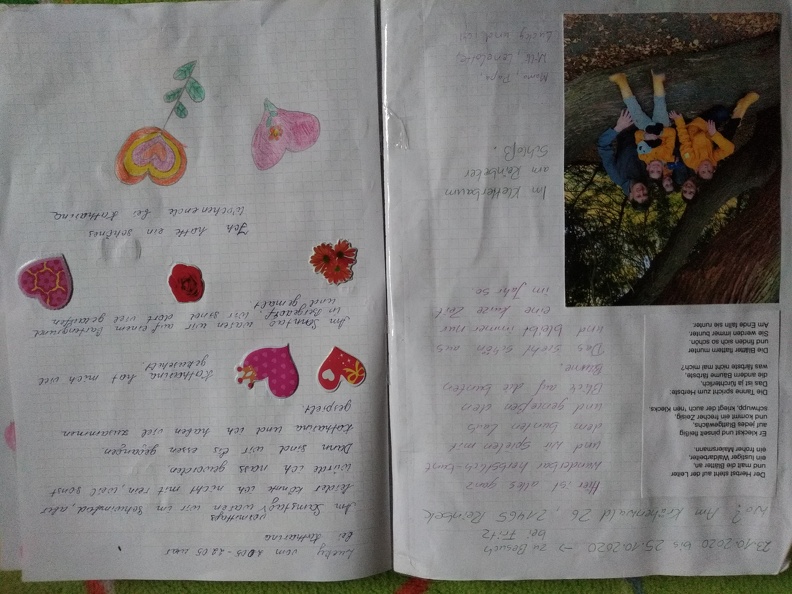 23.10.2020 bis 25.10.2020 → zu Besuch
bei Fritz
Wo? Am Krähenwald 26, 21465 Reinbek
Der Herbst steht auf der Leiter
und malt die Blätter an,
ein lustiger Waldarbeiter,
ein froher Malersmann.
Er kleckst und pinselt fleißig
auf jedes Blattgewächs,
und kommt ein frecher Zeisig,
schwupp, kriegt der auch 'nen Klecks.
Die Tanne spricht zum Herbste:
Das ist ja fürchterlich,
die andern Bäume färbste,
was färbste nicht mal mich?
Die Blätter flattern munter
und finden sich so schön.
Sie werden immer bunter.
Am Ende falln sie runter.
Hier ist alles ganz
wunderbar herbstlich-bunt
und wir spielen mit
dem bunten Laub
und genießen den
Blick auf die bunten
Bäume.
Das sieht schön aus
und bleibt immer nur
eine kurze Zeit
im Jahr so
Im Kletterbaum
am Reinbeker
Schloß.
Mama, Papa,
Lucky und
Lucky vom 20.05-22.05 war
bei Katharina
Im Samstag vormittags waren wir im Schwimmbad, aber
leider konnte ich nicht mit rein, weil sonst
würde ich nass geworden.
Dann sind wir Eis essen gegangen
Katharina und ich haben viel zusammen
gespielt
Katharina hat mich viel
gekuschelt.
Im Sonntag waren wir auf einem Gartengrund
in Bergedorf, wir sind dort viel gelaufen
und gemalt
Ich hatte ein schönes
Wochenende bei Katharina